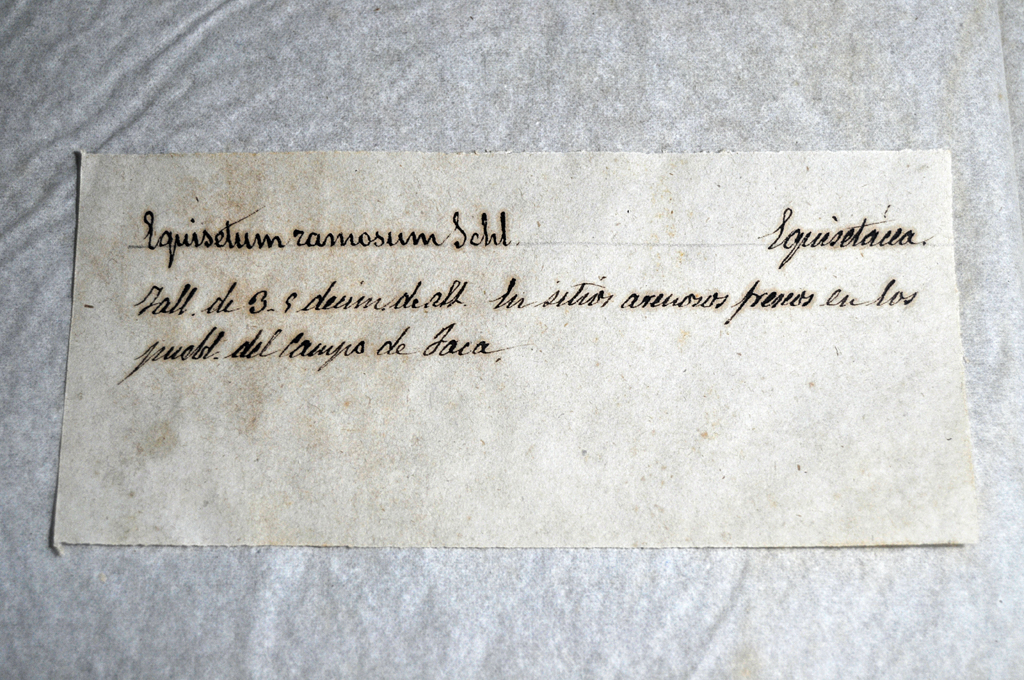 Equisetum ramosum Schl. Equisetacea.
Tall. de 3-5 decim. de alt. En sitios arenosos frescos en los
puebl. del Campo de Jaca.